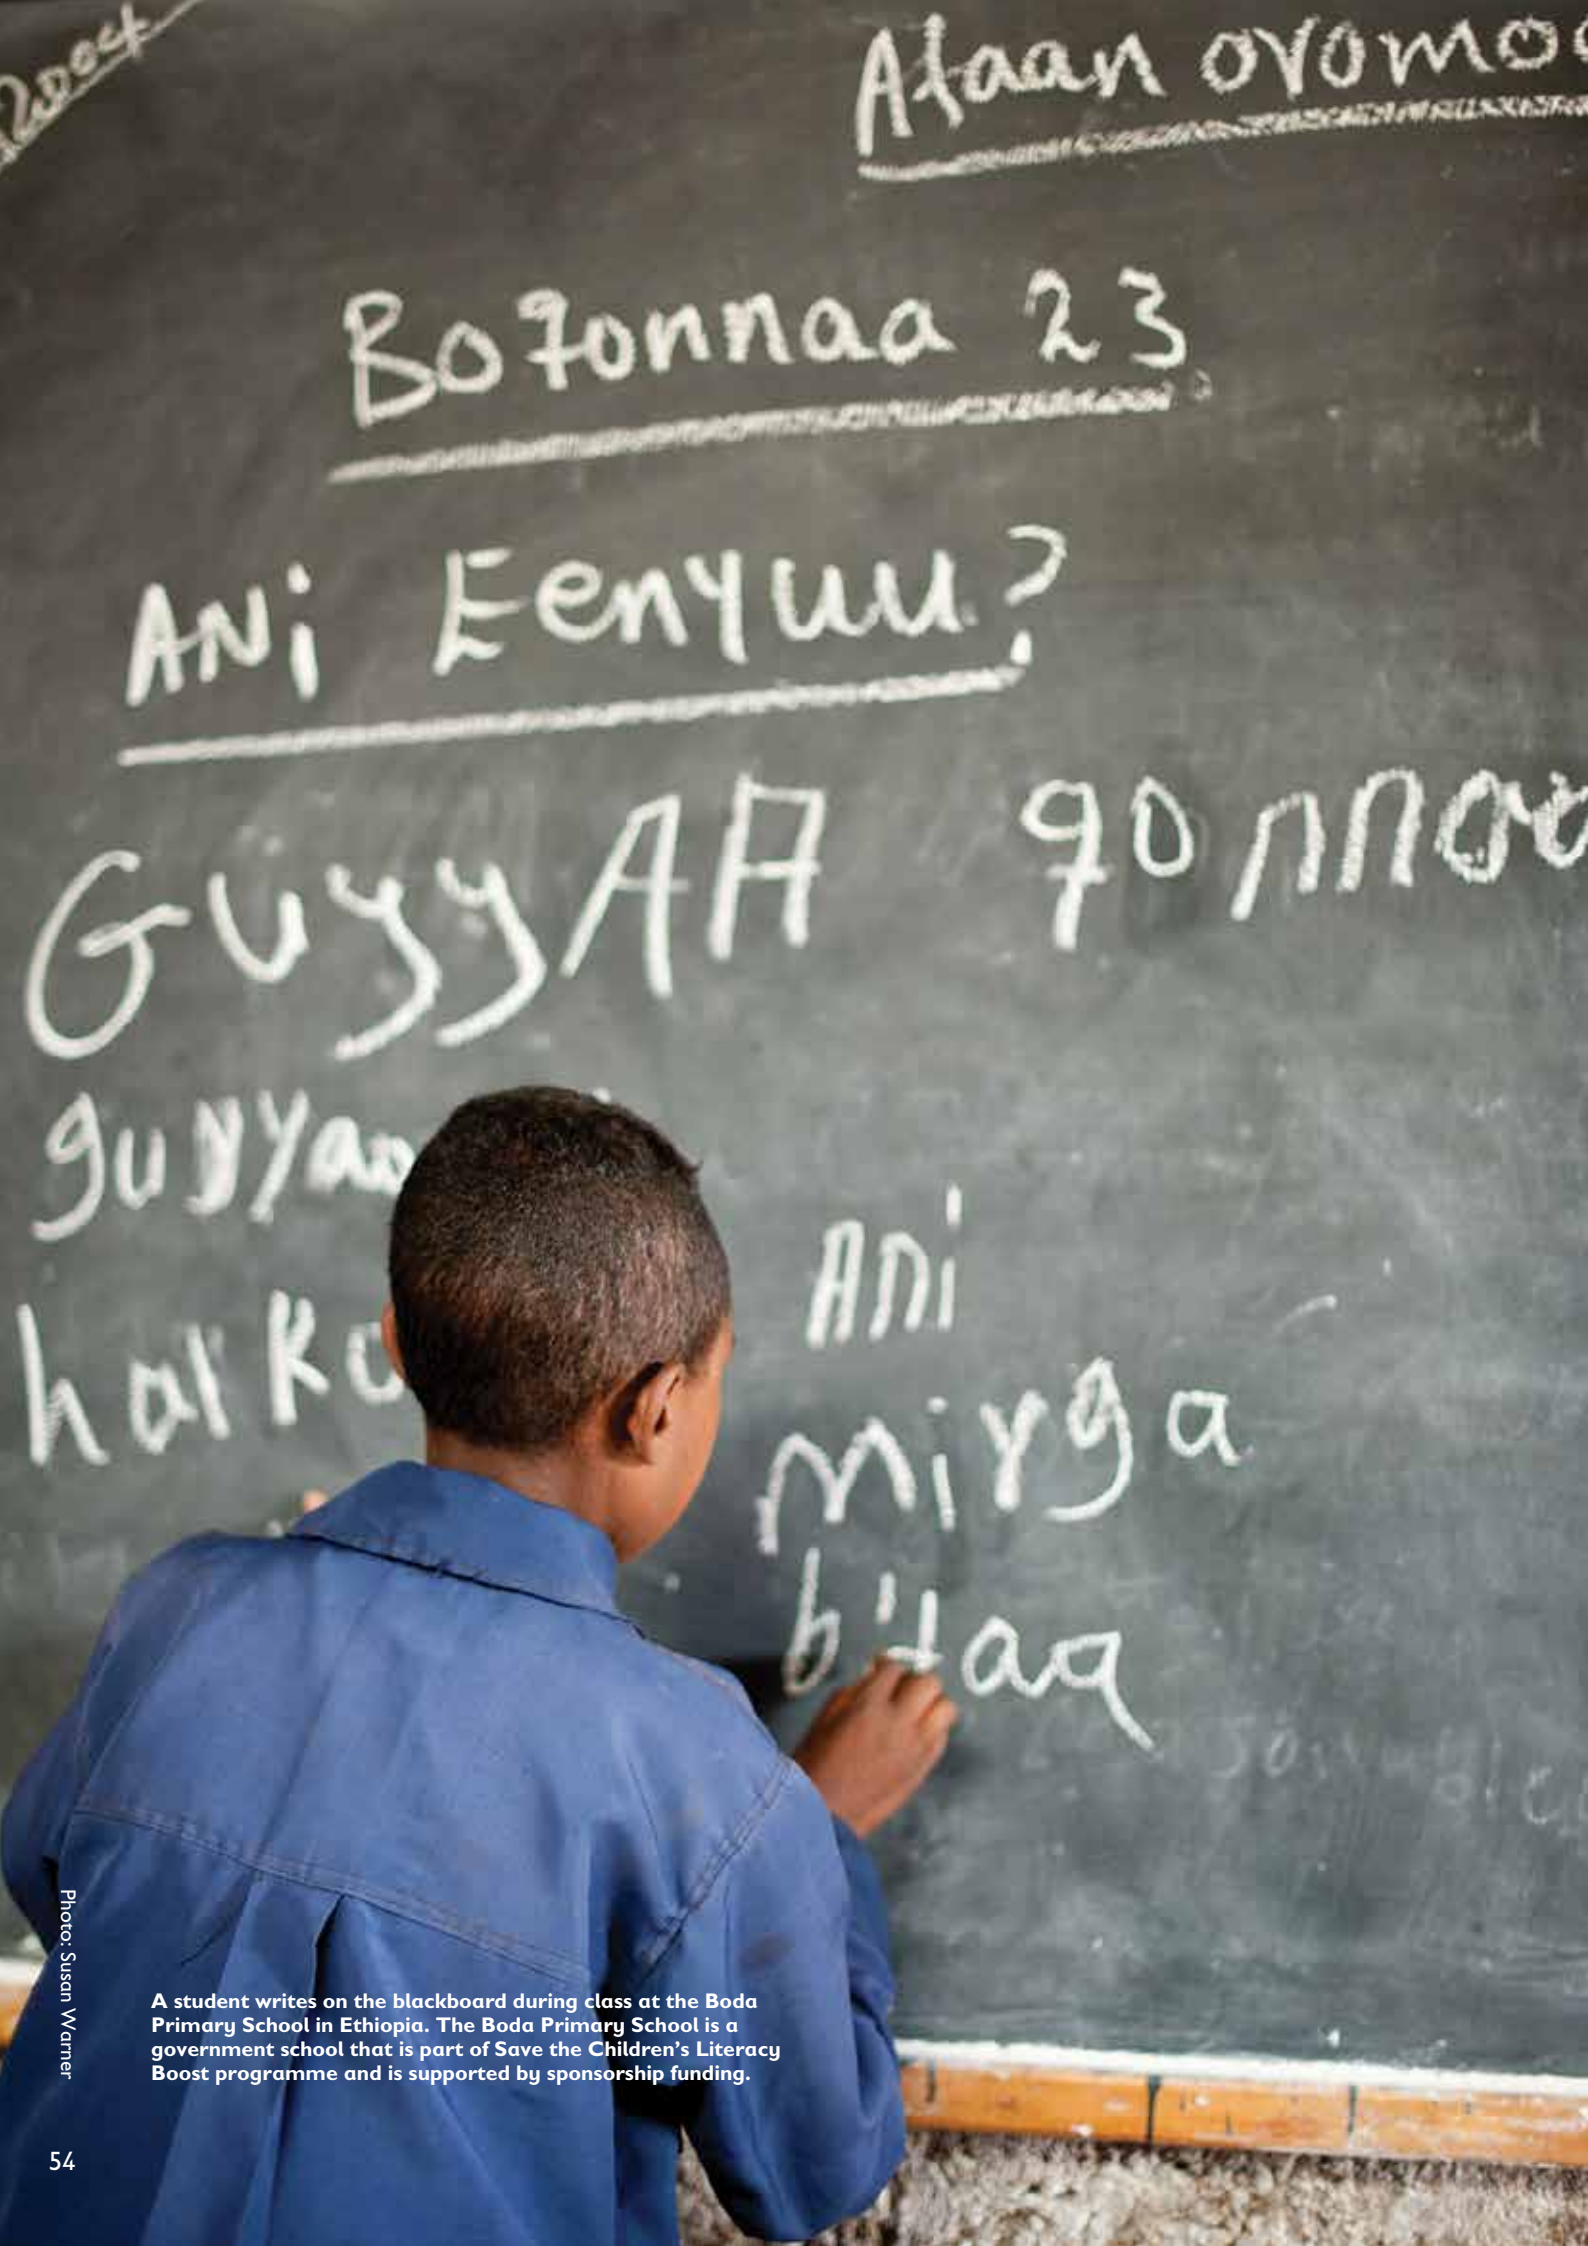 2004
Afaan oromoo
Boqonnaa 23
ANi Eenyuu?
GuyyAA qonnaa
guyyaa
halk
Ani
mirga
bitaa
Photo: Susan Warner
A student writes on the blackboard during class at the Boda
Primary School in Ethiopia. The Boda Primary School is a
government school that is part of Save the Children’s Literacy
Boost programme and is supported by sponsorship funding.
54